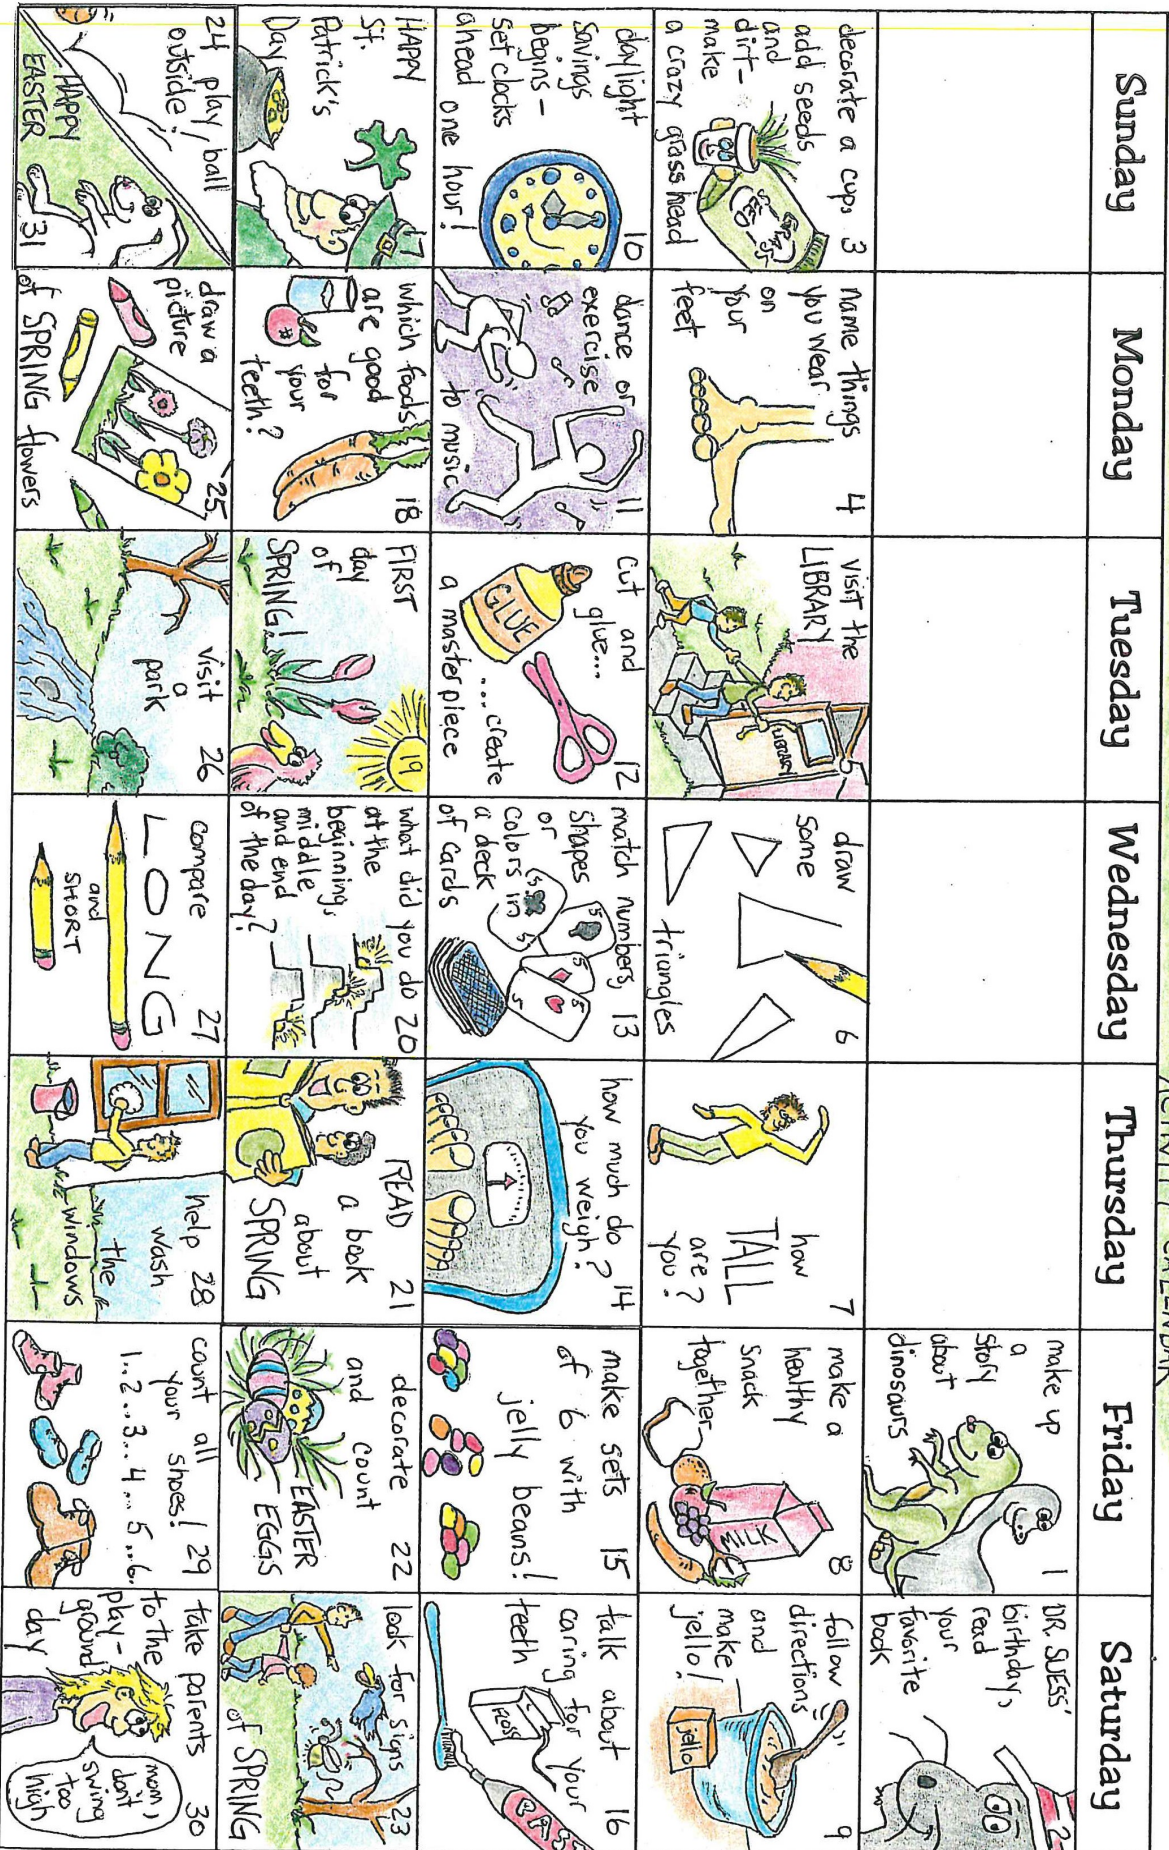 ACTIVITY CALENDAR
Sunday
Monday
Tuesday
Wednesday
Thursday
Friday
Saturday
make up 1
a
story
about
dinosaurs
DR. SUESS' 2
birthday,
read
your
favorite
book
decorate a cup, 3
add seeds
and
dirt-
make
a crazy grass head
GRASS
SEED
name things 4
you wear
on
your
feet
visit the
LIBRARY
LIBRARY
draw 6
some
triangles
how 7
TALL
are
you?
make a 8
healthy
snack
together
MILK
follow 9
directions
and
make
jello!
jello
daylight 10
savings
begins-
set clocks
ahead one hour!
dance or 11
exercise
to music
cut and 12
glue...
GLUE
....create
a masterpiece
match numbers, 13
shapes
or
colors in
a deck
of cards
5
5
5
5
how much do 14
you weigh?
make sets 15
of 6 with
jelly beans!
talk about 16
caring for your
teeth
FLOSS
HAPPY 17
St.
Patrick's
Day
which foods 18
are good
for
your
teeth?
FIRST 19
day
of
SPRING!
what did you do 20
at the
beginning,
middle
and end
of the day?
READ 21
a book
about
SPRING
decorate 22
and count
EASTER
EGGS
look for signs 23
of SPRING
24 play ball
outside!
HAPPY
EASTER 31
draw a 25
picture
of SPRING flowers
visit 26
a
park
compare 27
LONG
and
SHORT
help 28
wash
the
windows
count all 29
your shoes!
1...2...3...4...5...6.
take parents 30
to the
play-
ground
day
mom,
don't
swing
too
high